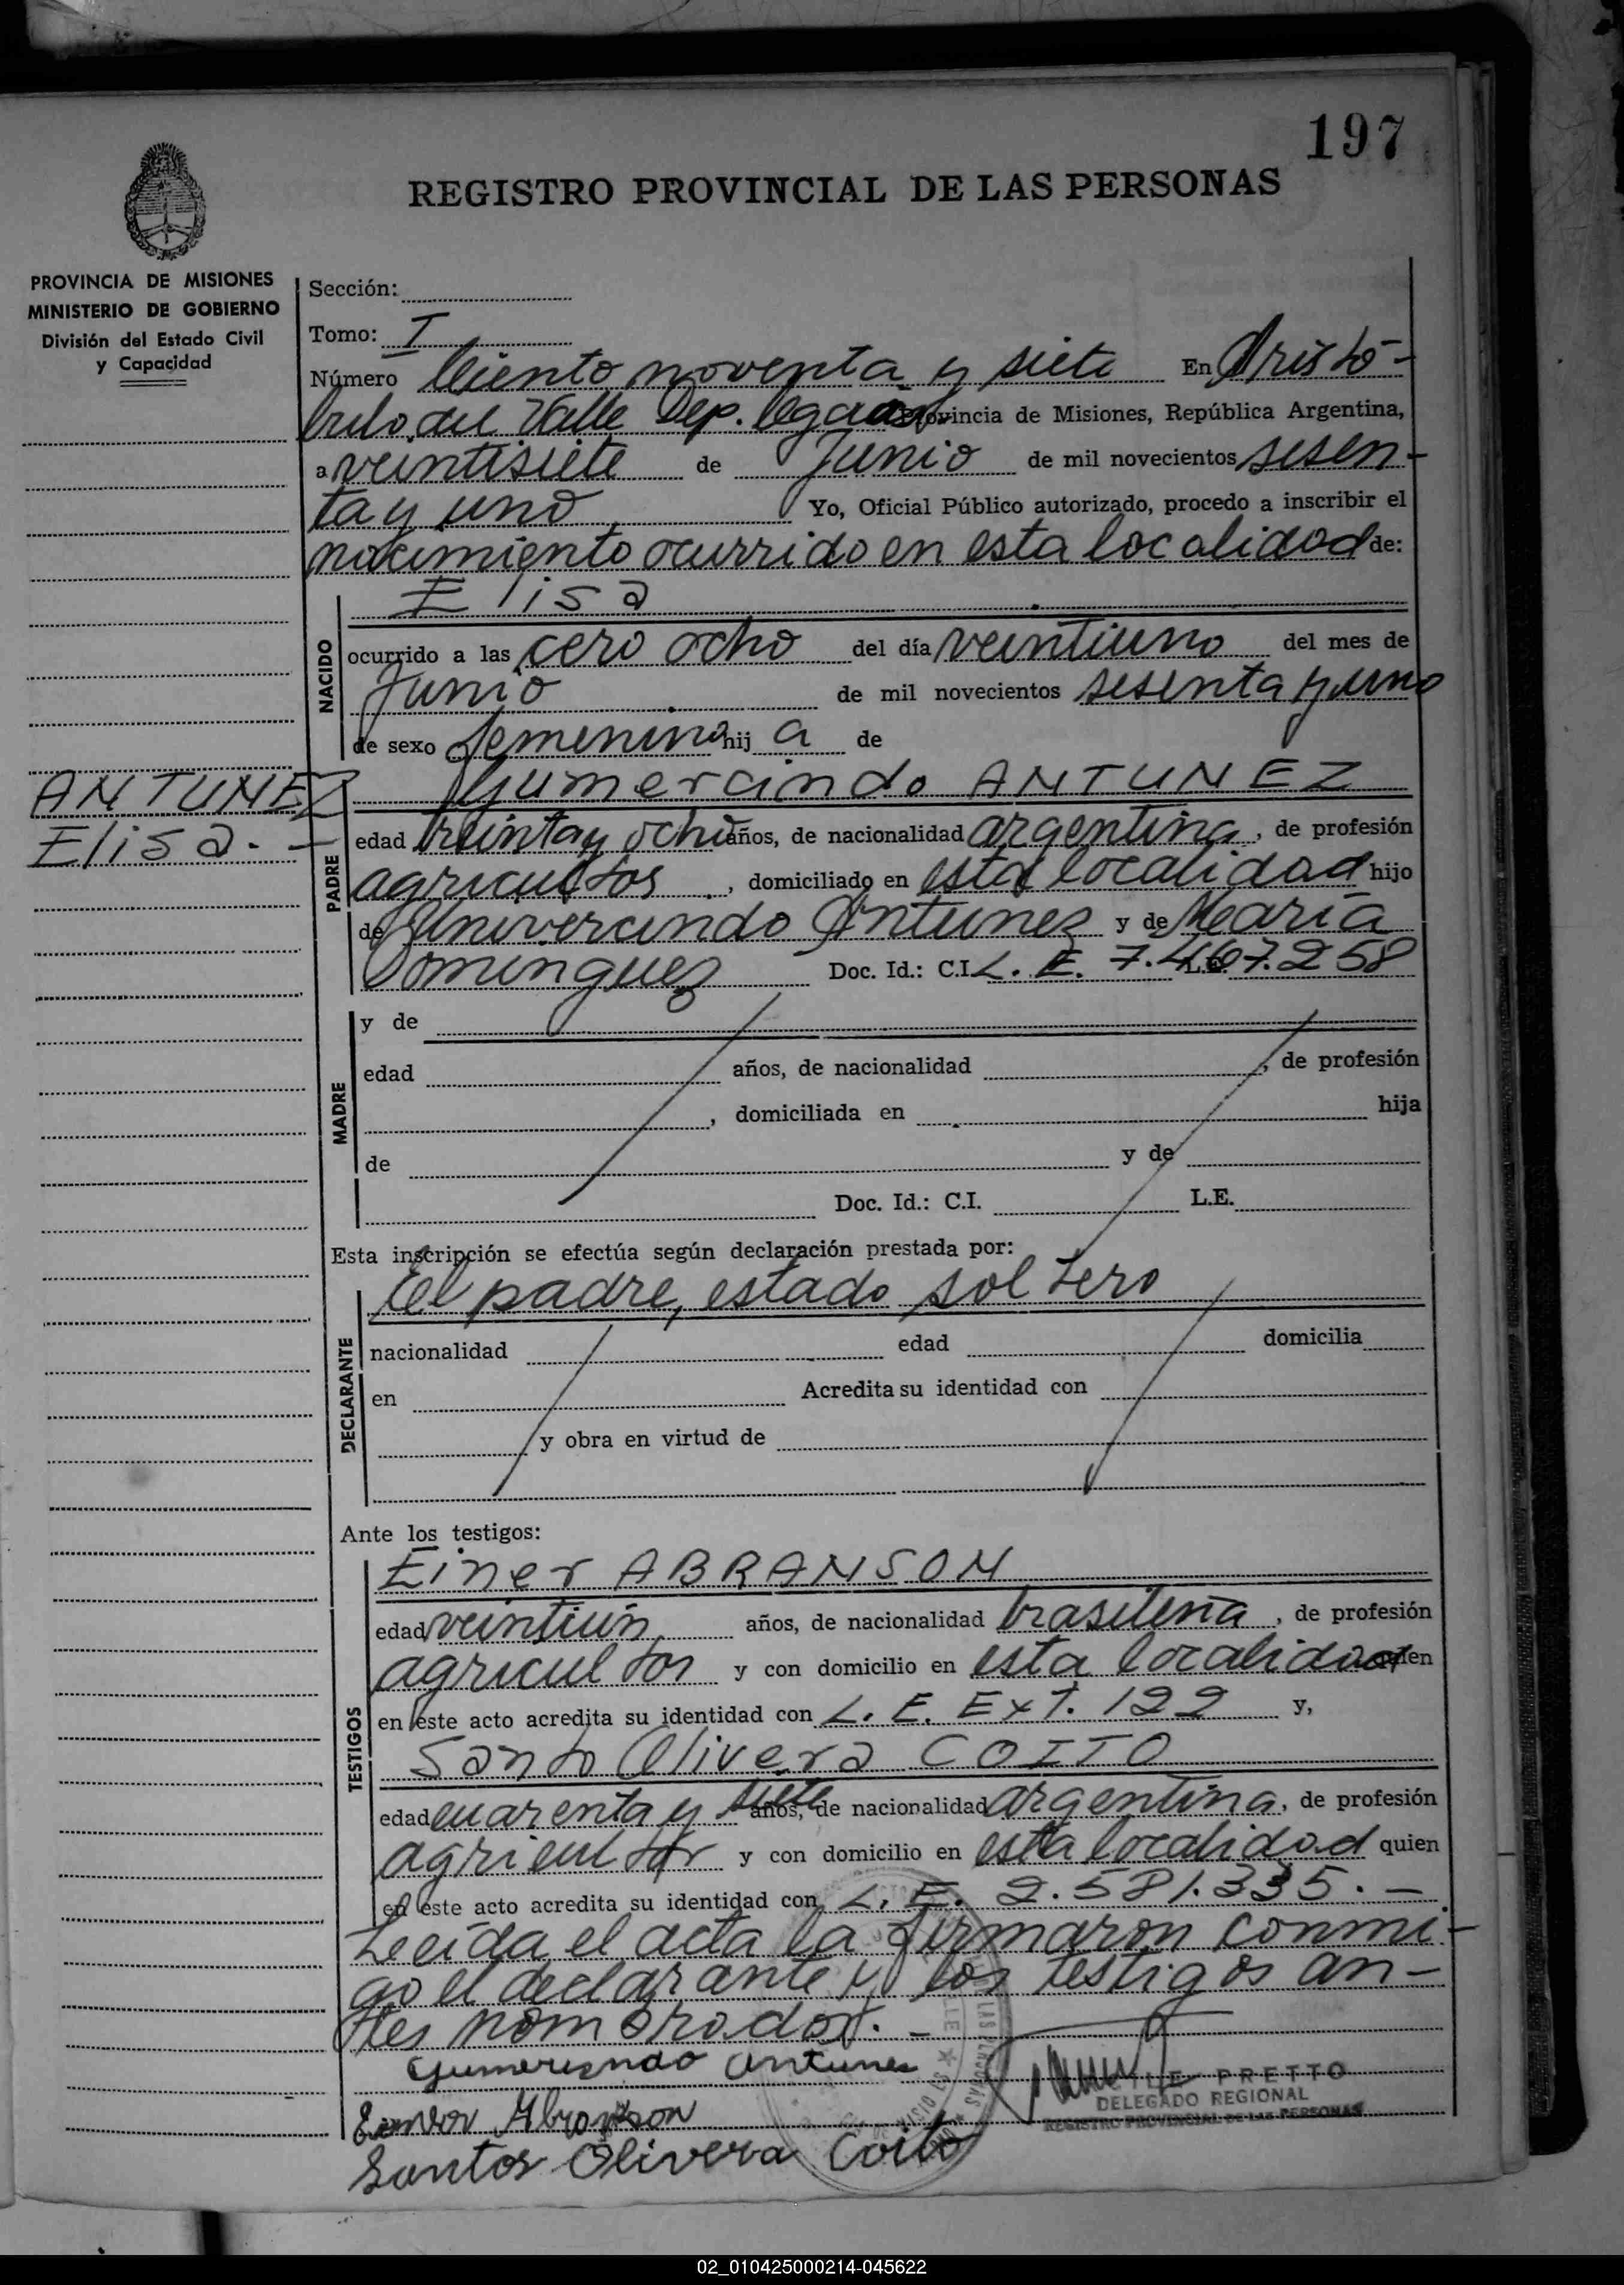 197
REGISTRO PROVINCIAL DE LAS PERSONAS
PROVINCIA DE MISIONES
MINISTERIO DE GOBIERNO
División del Estado Civil
y Capacidad
Sección:
Tomo: I
Número Ciento noventa y siete En Aristó-
bulo del Valle Dep. Provincia de Misiones, República Argentina,
a veintisiete de Junio de mil novecientos sesen-
ta y uno Yo, Oficial Público autorizado, procedo a inscribir el
nacimiento ocurrido en esta localidad de:
NACIDO
Elisa
ocurrido a las cero ocho del día veintiuno del mes de
Junio de mil novecientos sesenta y uno
de sexo femenino hij a de
ANTUNEZ
Elisa. -
PADRE
Gumercindo ANTUNEZ
edad treinta y ocho años, de nacionalidad argentina, de profesión
agricultor, domiciliado en esta localidad hijo
de Antunez y de María
Dominguez Doc. Id.: C.I. L. E. 7.467.258
MADRE
y de
edad años, de nacionalidad , de profesión
, domiciliada en hija
de y de
Doc. Id.: C.I. L.E.
Esta inscripción se efectúa según declaración prestada por:
DECLARANTE
El padre, estado soltero
nacionalidad edad domicilia
en Acredita su identidad con
y obra en virtud de
Ante los testigos:
TESTIGOS
Einer ABRANSON
edad veintiún años, de nacionalidad brasileña, de profesión
agricultor y con domicilio en esta localidad quien
en este acto acredita su identidad con L. E. Ext. 122 y,
Santo Olivera COITO
edad cuarenta y siete años, de nacionalidad argentina, de profesión
agricultor y con domicilio en esta localidad quien
en este acto acredita su identidad con L. E. 2.581.335. -
Leída el acta la firmaron conmi-
go el declarante y los testigos an-
tes nombrados. -
Gumersindo Antunes
PRETTO
DELEGADO REGIONAL
REGISTRO PROVINCIAL DE LAS PERSONAS
Abranson
Santos Olivera Coito
02_010425000214-045622